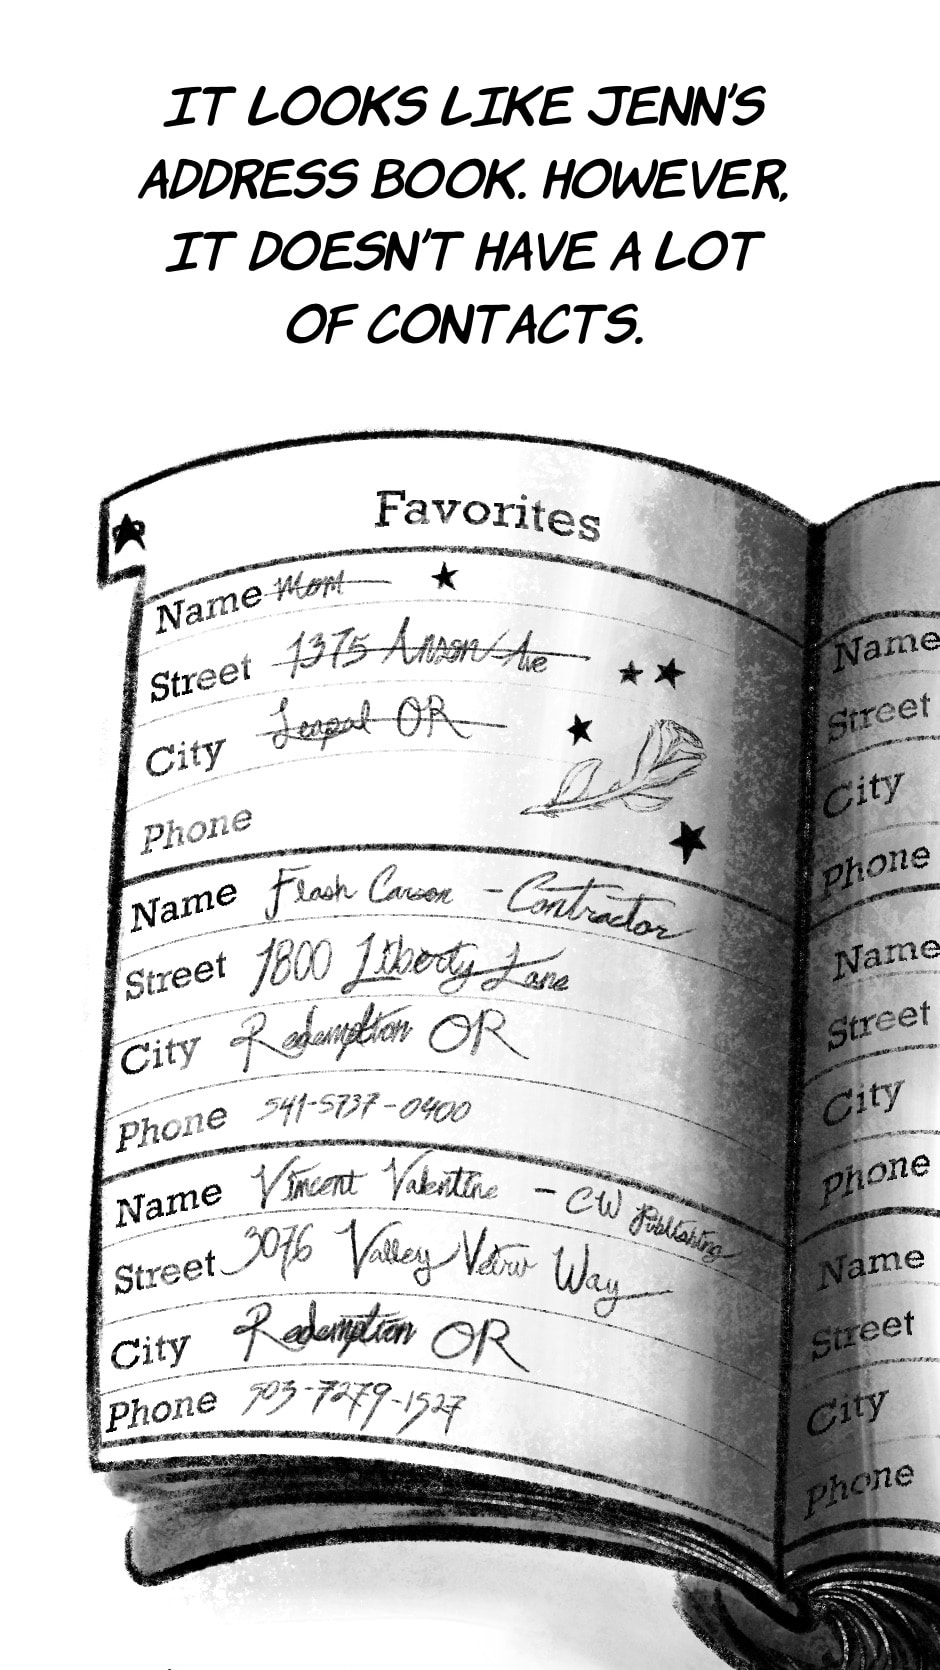 IT LOOKS LIKE JENN'S
ADDRESS BOOK. HOWEVER,
IT DOESN'T HAVE A LOT
OF CONTACTS.
Favorites
Name Mom
Street 1375 Anson Ave
City OR
Phone
Name Flash Carson - Contractor
Street 1800 Liberty Lane
City Redemption OR
Phone 541-5737-0400
Name Vincent Valentine - CW Publishing
Street 3076 Valley Veiw Way
City Redemption OR
Phone 503-7279-1527
Name
Street
City
Phone
Name
Street
City
Phone
Name
Street
City
Phone